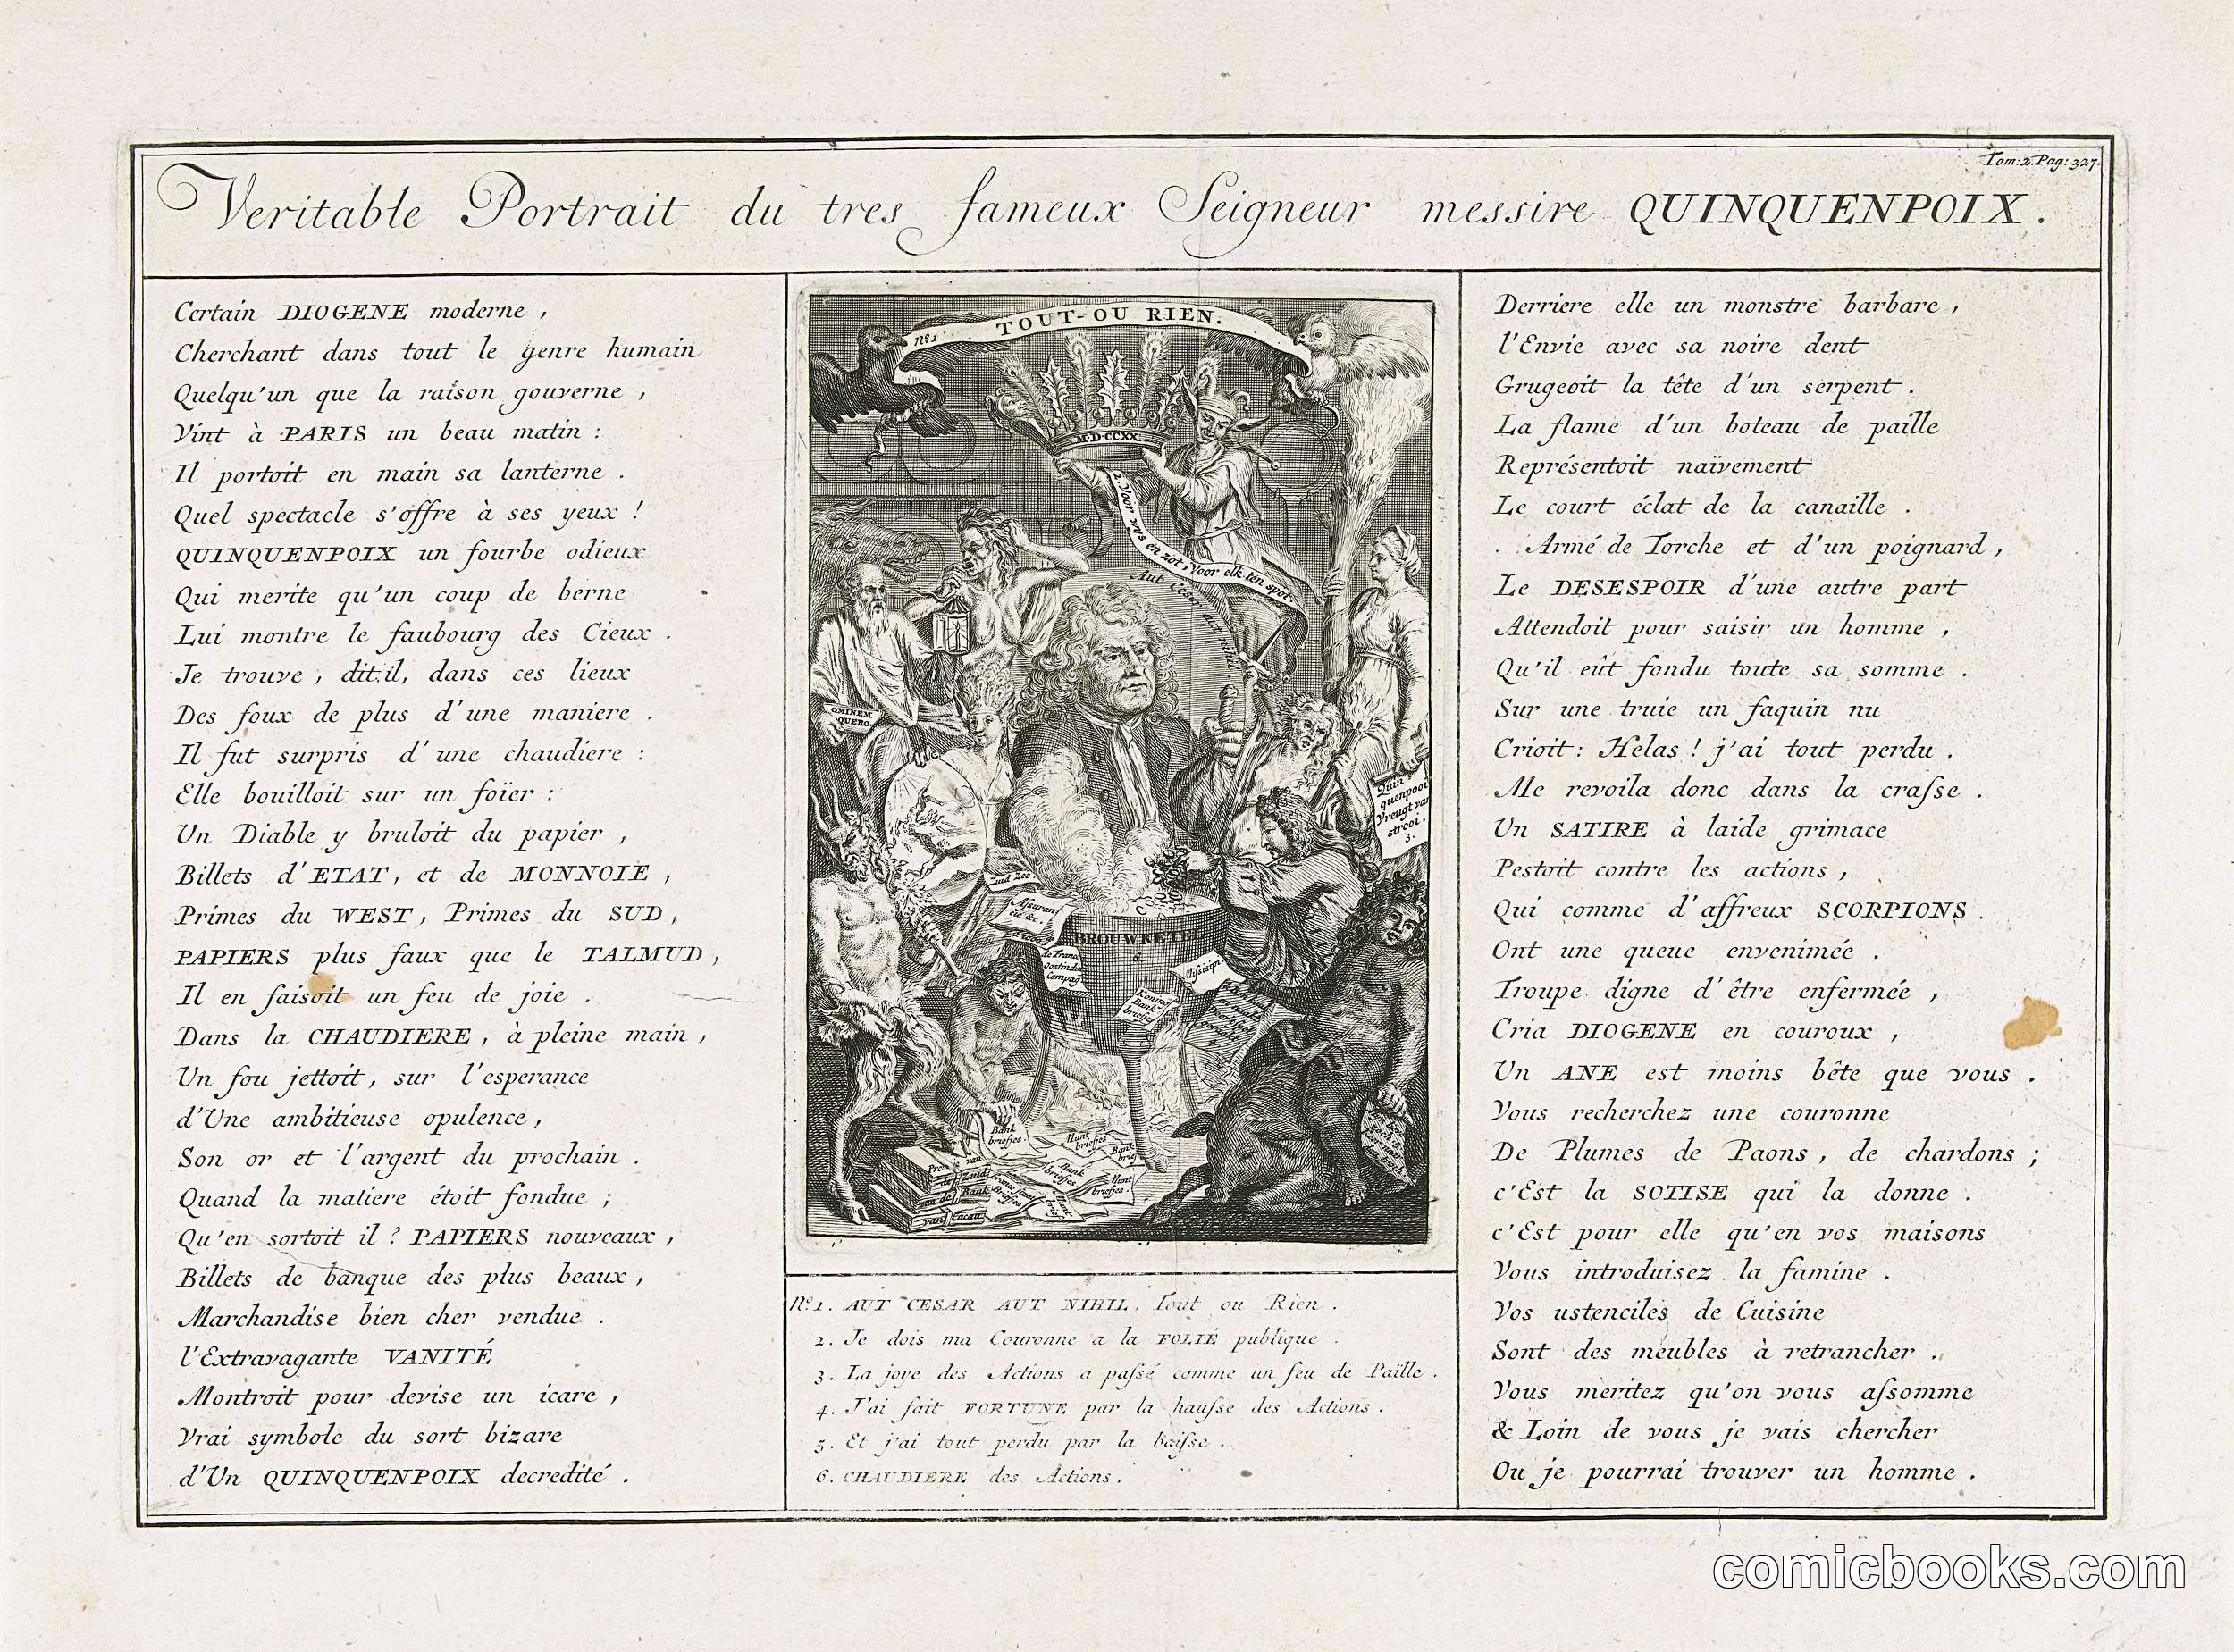 Tom: 2. Pag: 327.
Veritable Portrait du tres fameux Seigneur messire QUINQUENPOIX.
Certain DIOGENE moderne,
Cherchant dans tout le genre humain
Quelqu'un que la raison gouverne,
Vint à PARIS un beau matin:
Il portoit en main sa lanterne.
Quel spectacle s'offre à ses yeux!
QUINQUENPOIX un fourbe odieux
Qui merite qu'un coup de berne
Lui montre le faubourg des Cieux.
Je trouve, dit:il, dans ces lieux
Des foux de plus d'une maniere.
Il fut surpris d'une chaudiere:
Elle bouilloit sur un foïer:
Un Diable y bruloit du papier,
Billets d'ETAT, et de MONNOIE,
Primes du WEST, Primes du SUD,
PAPIERS plus faux que le TALMUD,
Il en faisoit un feu de joie.
Dans la CHAUDIERE, à pleine main,
Un fou jettoit, sur l'esperance
d'Une ambitieuse opulence,
Son or et l'argent du prochain.
Quand la matiere étoit fondue;
Qu'en sortoit il? PAPIERS nouveaux,
Billets de banque des plus beaux,
Marchandise bien cher vendue.
l'Extravagante VANITÉ
Montroit pour devise un icare,
Vrai symbole du sort bizare
d'Un QUINQUENPOIX decredité.
No. 1
TOUT-OU RIEN.
M·D·CCXX
2. Voor wys en zot, Voor elk ten spot.
Aut Cesar aut nihil.
OMINEM
QUERO.
Quin
quenpooi
Vreugt van
strooi.
3.
Zuid Zee
Assuran
tie &c.
BROUWKETEL
6
de Franc
Oostindi
Compag
Missisipi
Bank
briefjes
Bank
briefjes
Munt
briefjes
Bank
brie
Bank
briefjes
Munt
briefjes
van
de Zuid
van de Bank
Briefjes
van Cacau
No. 1. AUT CESAR AUT NIHIL, Tout ou Rien.
2. Je dois ma Couronne a la FOLIÉ publique.
3. La joye des Actions a passé comme un feu de Paille.
4. J'ai fait FORTUNE par la hausse des Actions.
5. Et j'ai tout perdu par la baisse.
6. CHAUDIERE des Actions.
Derriere elle un monstre barbare,
l'Envie avec sa noire dent
Grugeoit la tête d'un serpent.
La flame d'un boteau de paille
Représentoit naïvement
Le court éclat de la canaille.
Armé de Torche et d'un poignard,
Le DESESPOIR d'une autre part
Attendoit pour saisir un homme,
Qu'il eût fondu toute sa somme.
Sur une truie un faquin nu
Crioit: Helas! j'ai tout perdu.
Me revoila donc dans la crasse.
Un SATIRE à laide grimace
Pestoit contre les actions,
Qui comme d'affreux SCORPIONS.
Ont une queue envenimée.
Troupe digne d'être enfermée,
Cria DIOGENE en couroux,
Un ANE est moins bête que vous.
Vous recherchez une couronne
De Plumes de Paons, de chardons;
c'Est la SOTISE qui la donne.
c'Est pour elle qu'en vos maisons
Vous introduisez la famine.
Vos ustenciles de Cuisine
Sont des meubles à retrancher.
Vous meritez qu'on vous assomme
& Loin de vous je vais chercher
Ou je pourrai trouver un homme.
comicbooks.com